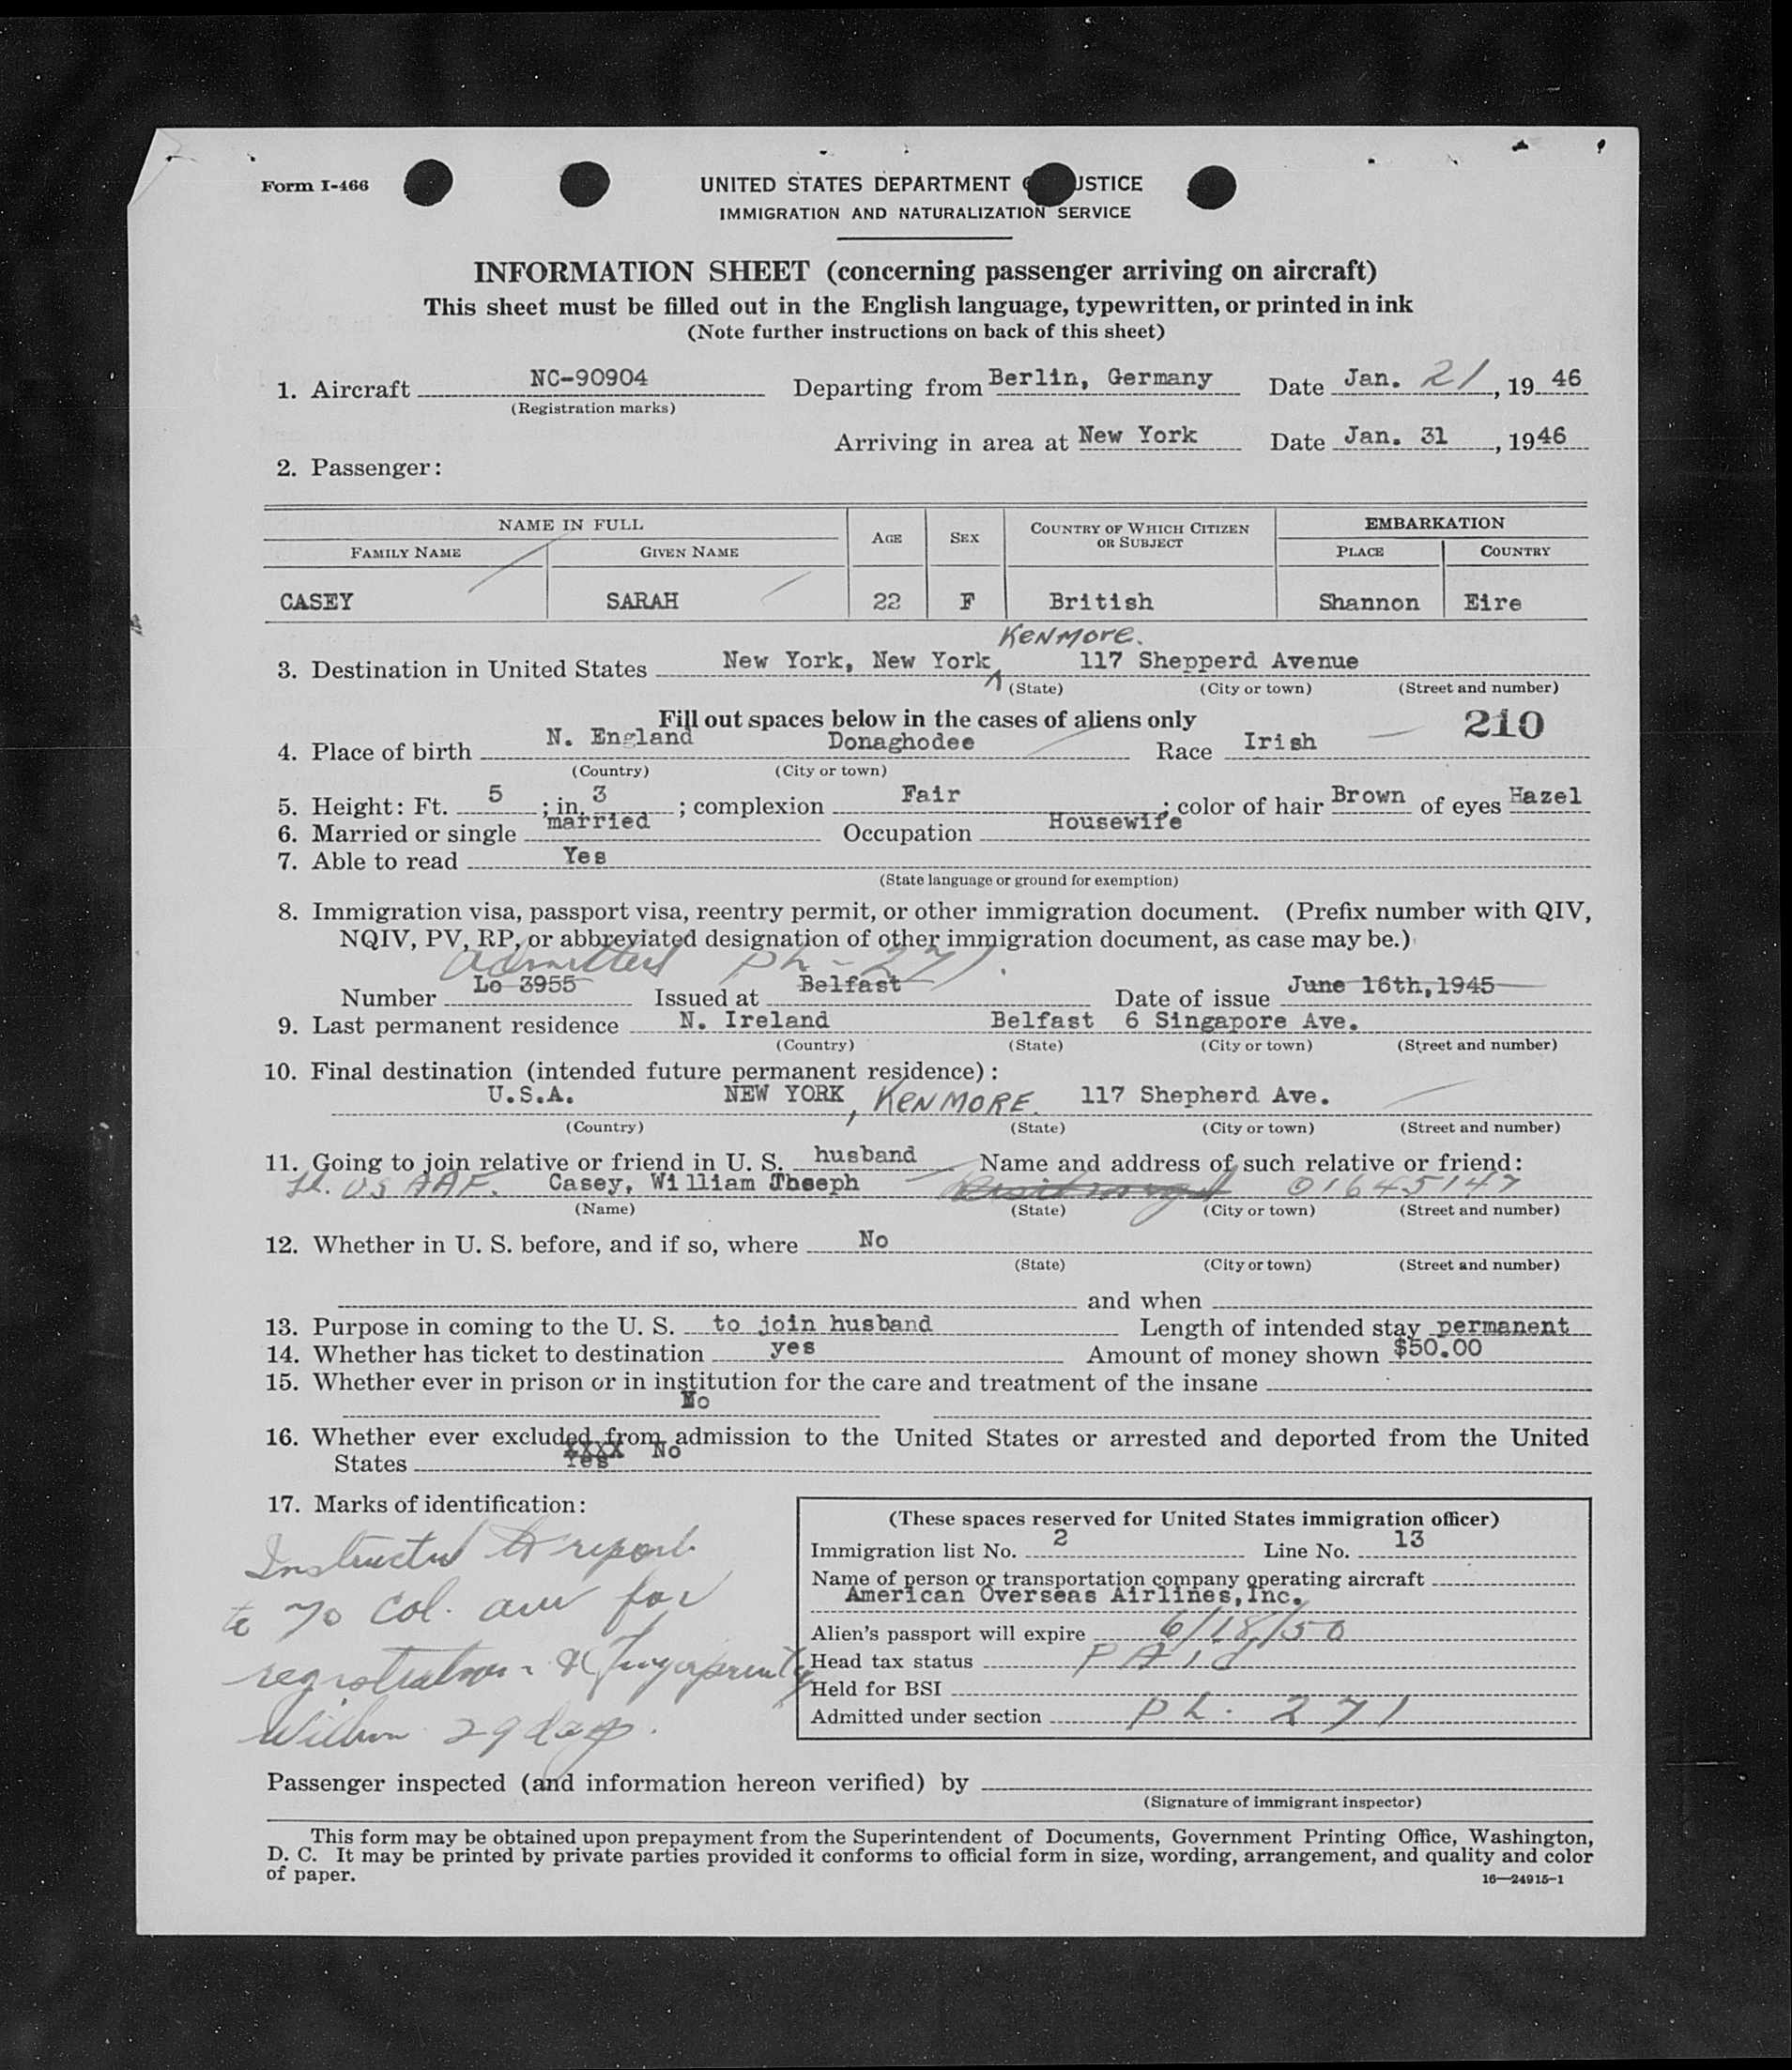 Form I-466
UNITED STATES DEPARTMENT O USTICE
IMMIGRATION AND NATURALIZATION SERVICE
INFORMATION SHEET (concerning passenger arriving on aircraft)
This sheet must be filled out in the English language, typewritten, or printed in ink
(Note further instructions on back of this sheet)
1. Aircraft NC-90904 Departing from Berlin, Germany Date Jan. 21, 1946
(Registration marks)
Arriving in area at New York Date Jan. 31, 1946
2. Passenger:
NAME IN FULL AGE SEX COUNTRY OF WHICH CITIZEN OR SUBJECT EMBARKATION
FAMILY NAME GIVEN NAME PLACE COUNTRY
CASEY SARAH 22 F British Shannon Eire
KENMORE.
3. Destination in United States New York, New York 117 Shepperd Avenue
(State) (City or town) (Street and number)
Fill out spaces below in the cases of aliens only 210
4. Place of birth N. England Donaghodee Race Irish
(Country) (City or town)
5. Height: Ft. 5 ; in. 3 ; complexion Fair ; color of hair Brown of eyes Hazel
6. Married or single married Occupation Housewife
7. Able to read Yes
(State language or ground for exemption)
8. Immigration visa, passport visa, reentry permit, or other immigration document. (Prefix number with QIV,
NQIV, PV, RP, or abbreviated designation of other immigration document, as case may be.)
Admitted PL-271.
Number Lo 3955 Issued at Belfast Date of issue June 16th, 1945
9. Last permanent residence N. Ireland Belfast 6 Singapore Ave.
(Country) (State) (City or town) (Street and number)
10. Final destination (intended future permanent residence):
U.S.A. NEW YORK, KENMORE. 117 Shepherd Ave.
(Country) (State) (City or town) (Street and number)
11. Going to join relative or friend in U. S. husband Name and address of such relative or friend:
Lt. US AAF. Casey, William Joseph 01645147
(Name) (State) (City or town) (Street and number)
12. Whether in U. S. before, and if so, where No
(State) (City or town) (Street and number)
and when
13. Purpose in coming to the U. S. to join husband Length of intended stay permanent
14. Whether has ticket to destination yes Amount of money shown $50.00
15. Whether ever in prison or in institution for the care and treatment of the insane
No
16. Whether ever excluded from admission to the United States or arrested and deported from the United
States Yes XXXX No
17. Marks of identification:
Instructed to report
to Col. for
registration & Fingerprinting
Within 29 days.
(These spaces reserved for United States immigration officer)
Immigration list No. 2 Line No. 13
Name of person or transportation company operating aircraft
American Overseas Airlines, Inc.
Alien's passport will expire 6/18/50
Head tax status PAid
Held for BSI
Admitted under section PL. 271
Passenger inspected (and information hereon verified) by
(Signature of immigrant inspector)
This form may be obtained upon prepayment from the Superintendent of Documents, Government Printing Office, Washington,
D. C. It may be printed by private parties provided it conforms to official form in size, wording, arrangement, and quality and color
of paper.
16—24915-1